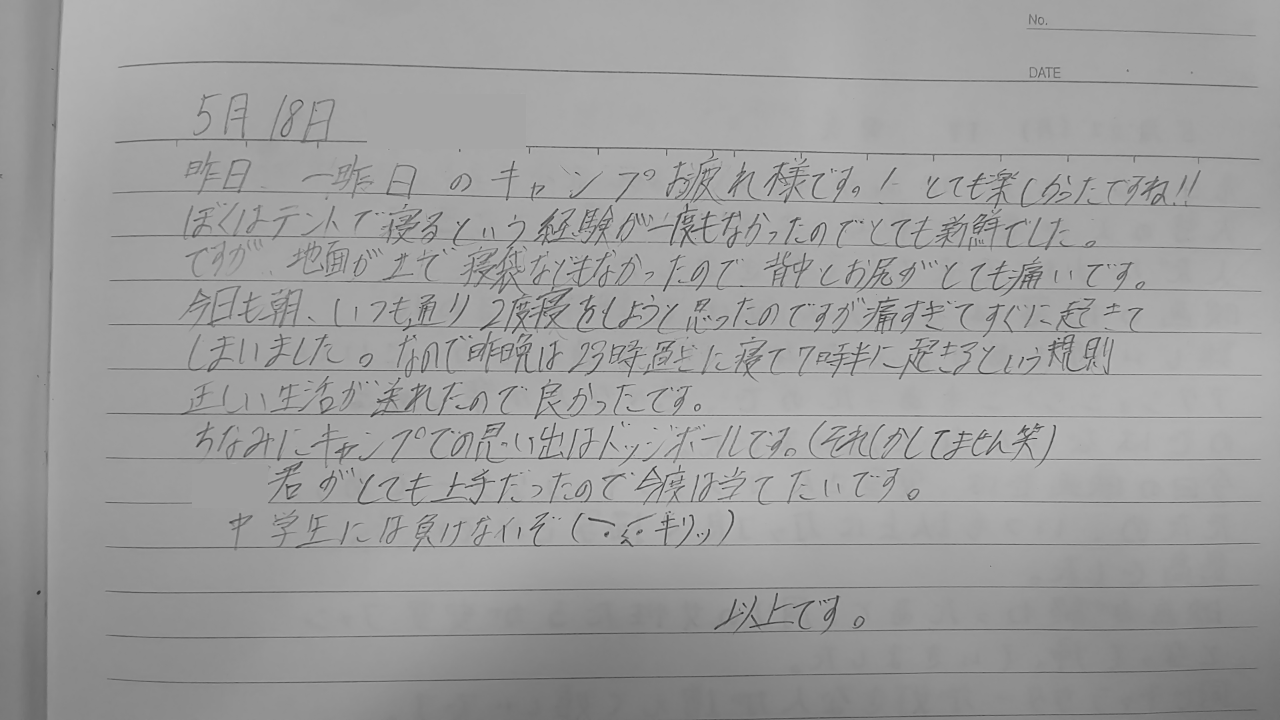 No.
DATE
5月18日
昨日、一昨日のキャンプお疲れ様です。！とても楽しかったですね!!
ぼくはテントで寝るという経験が一度もなかったのでとても新鮮でした。
ですが、地面が土で寝袋などもなかったので、背中とお尻がとても痛いです。
今日も朝、いつも通り2度寝をしようと思ったのですが痛すぎてすぐに起きて
しまいました。なので昨晩は23時過ぎに寝て7時半に起きるという規則
正しい生活が送れたので良かったです。
ちなみにキャンプでの思い出はドッジボールです。(それしかしてません笑)
君がとても上手だったので今度は当てたいです。
中学生には負けないぞ(キリッ)
以上です。